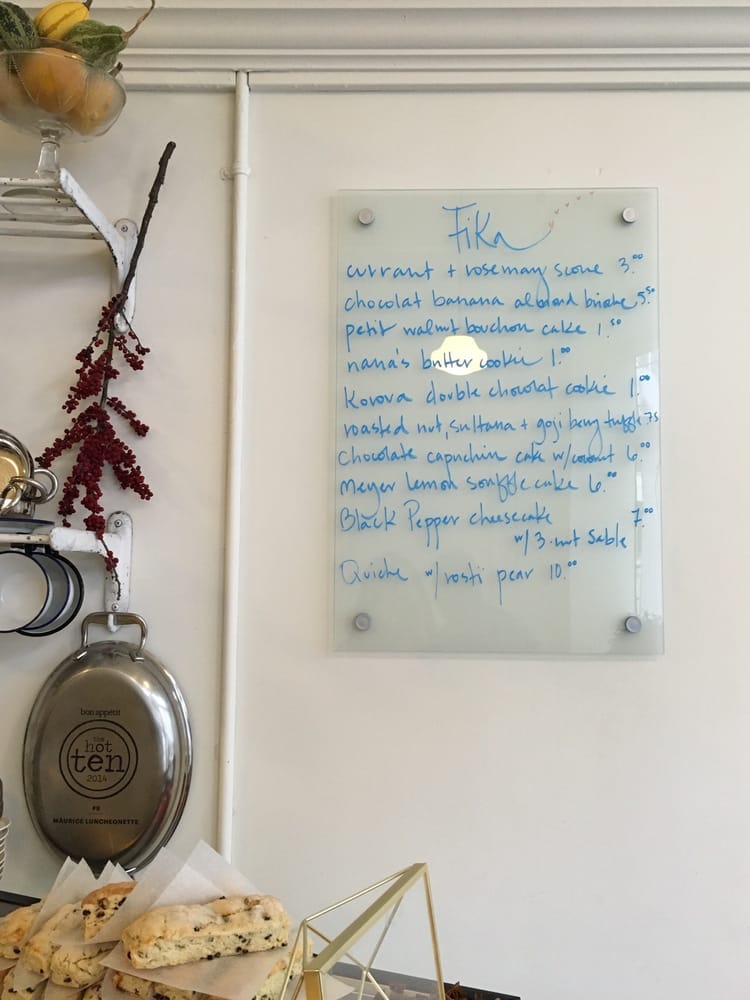 Fika
currant + rosemary scone 3.00
chocolat banana almond brioche 5.50
petit walnut bouchon cake 1.50
nana's butter cookie 1.00
Korova double chocolat cookie 1.00
roasted nut, sultana + goji berry truffle .75
Chocolate capuchin cake w/coconut 6.00
Meyer lemon souffle cake 6.00
Black Pepper cheesecake 7.00
w/ 3-nut Sable
Quiche w/rosti pear 10.00
bon appétit
the
hot
ten
2014
#8
MÅURICE LUNCHEONETTE